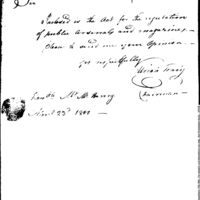 Sir
Inclosed is the Act for the regulation
of public Arsenals and magazines,
please to send me your Opinion
respectfully
Uriah Tracy
Chairman
Honble Mr McHenry
23d 1800